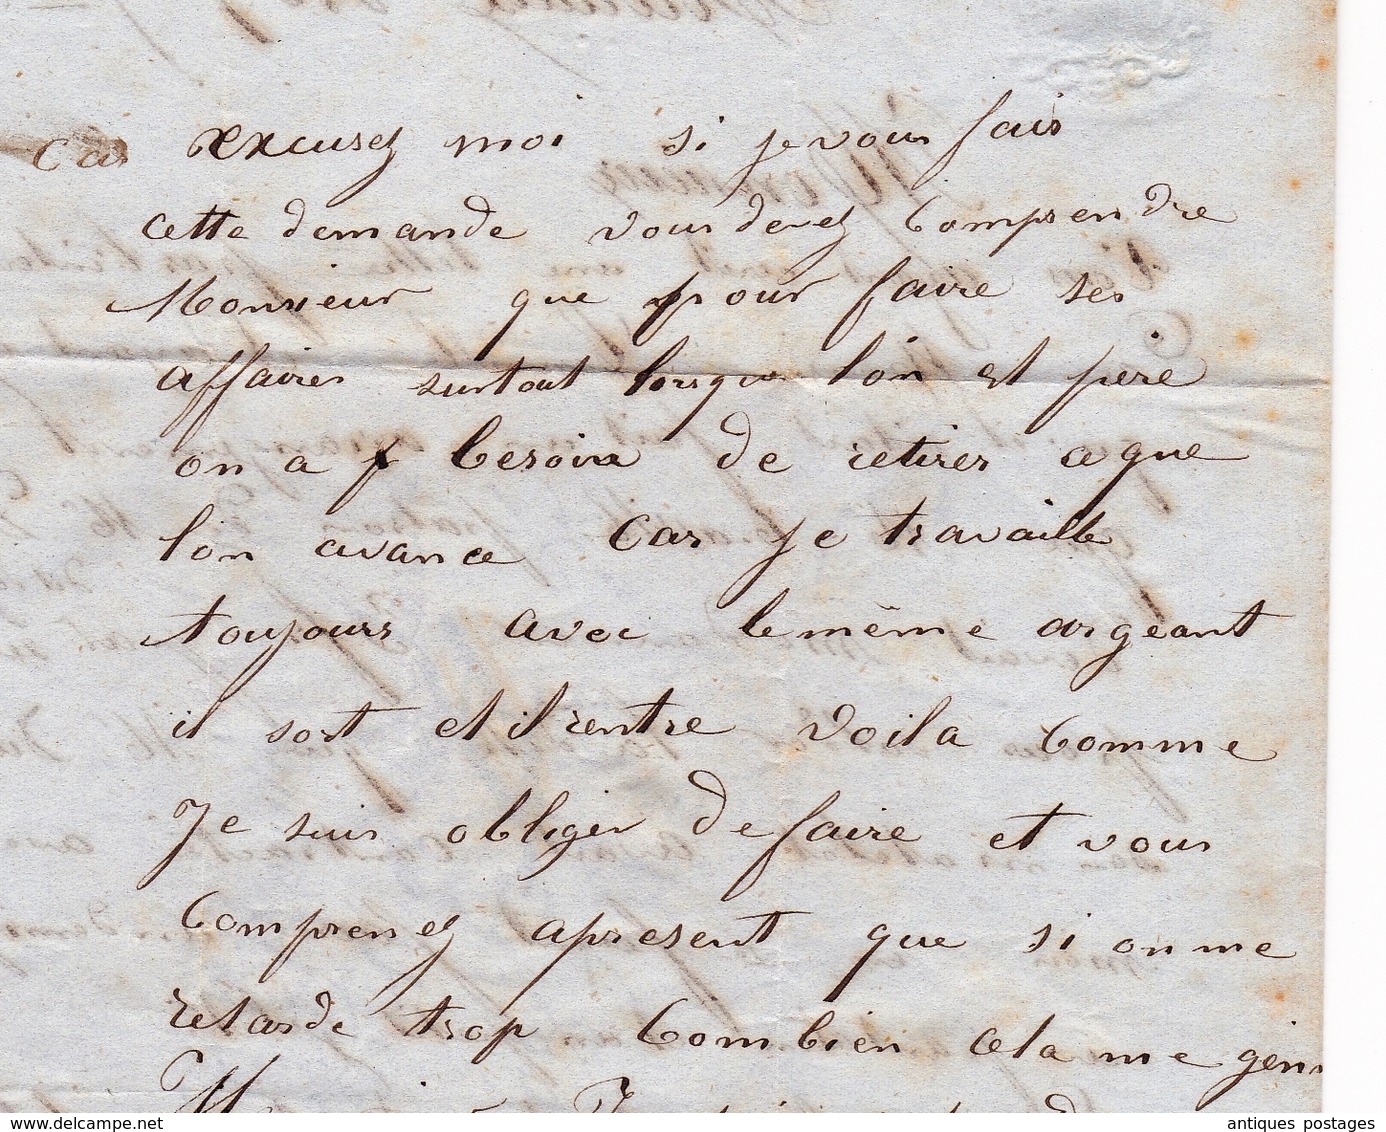 car excusez moi si je vous fais
cette demande vous devez Comprendre
Monsieur que pour faire ses
affaires surtout lorsque l'on est père
on a besoin de retirer ce que
l'on avance Car je travaille
toujours avec le même argeant
il sort et il rentre voila Comme
Je suis obliger de faire et vous
Comprenez apresent que si on me
retarde trop Combien cela me gene
delcampe.net
antiques postages